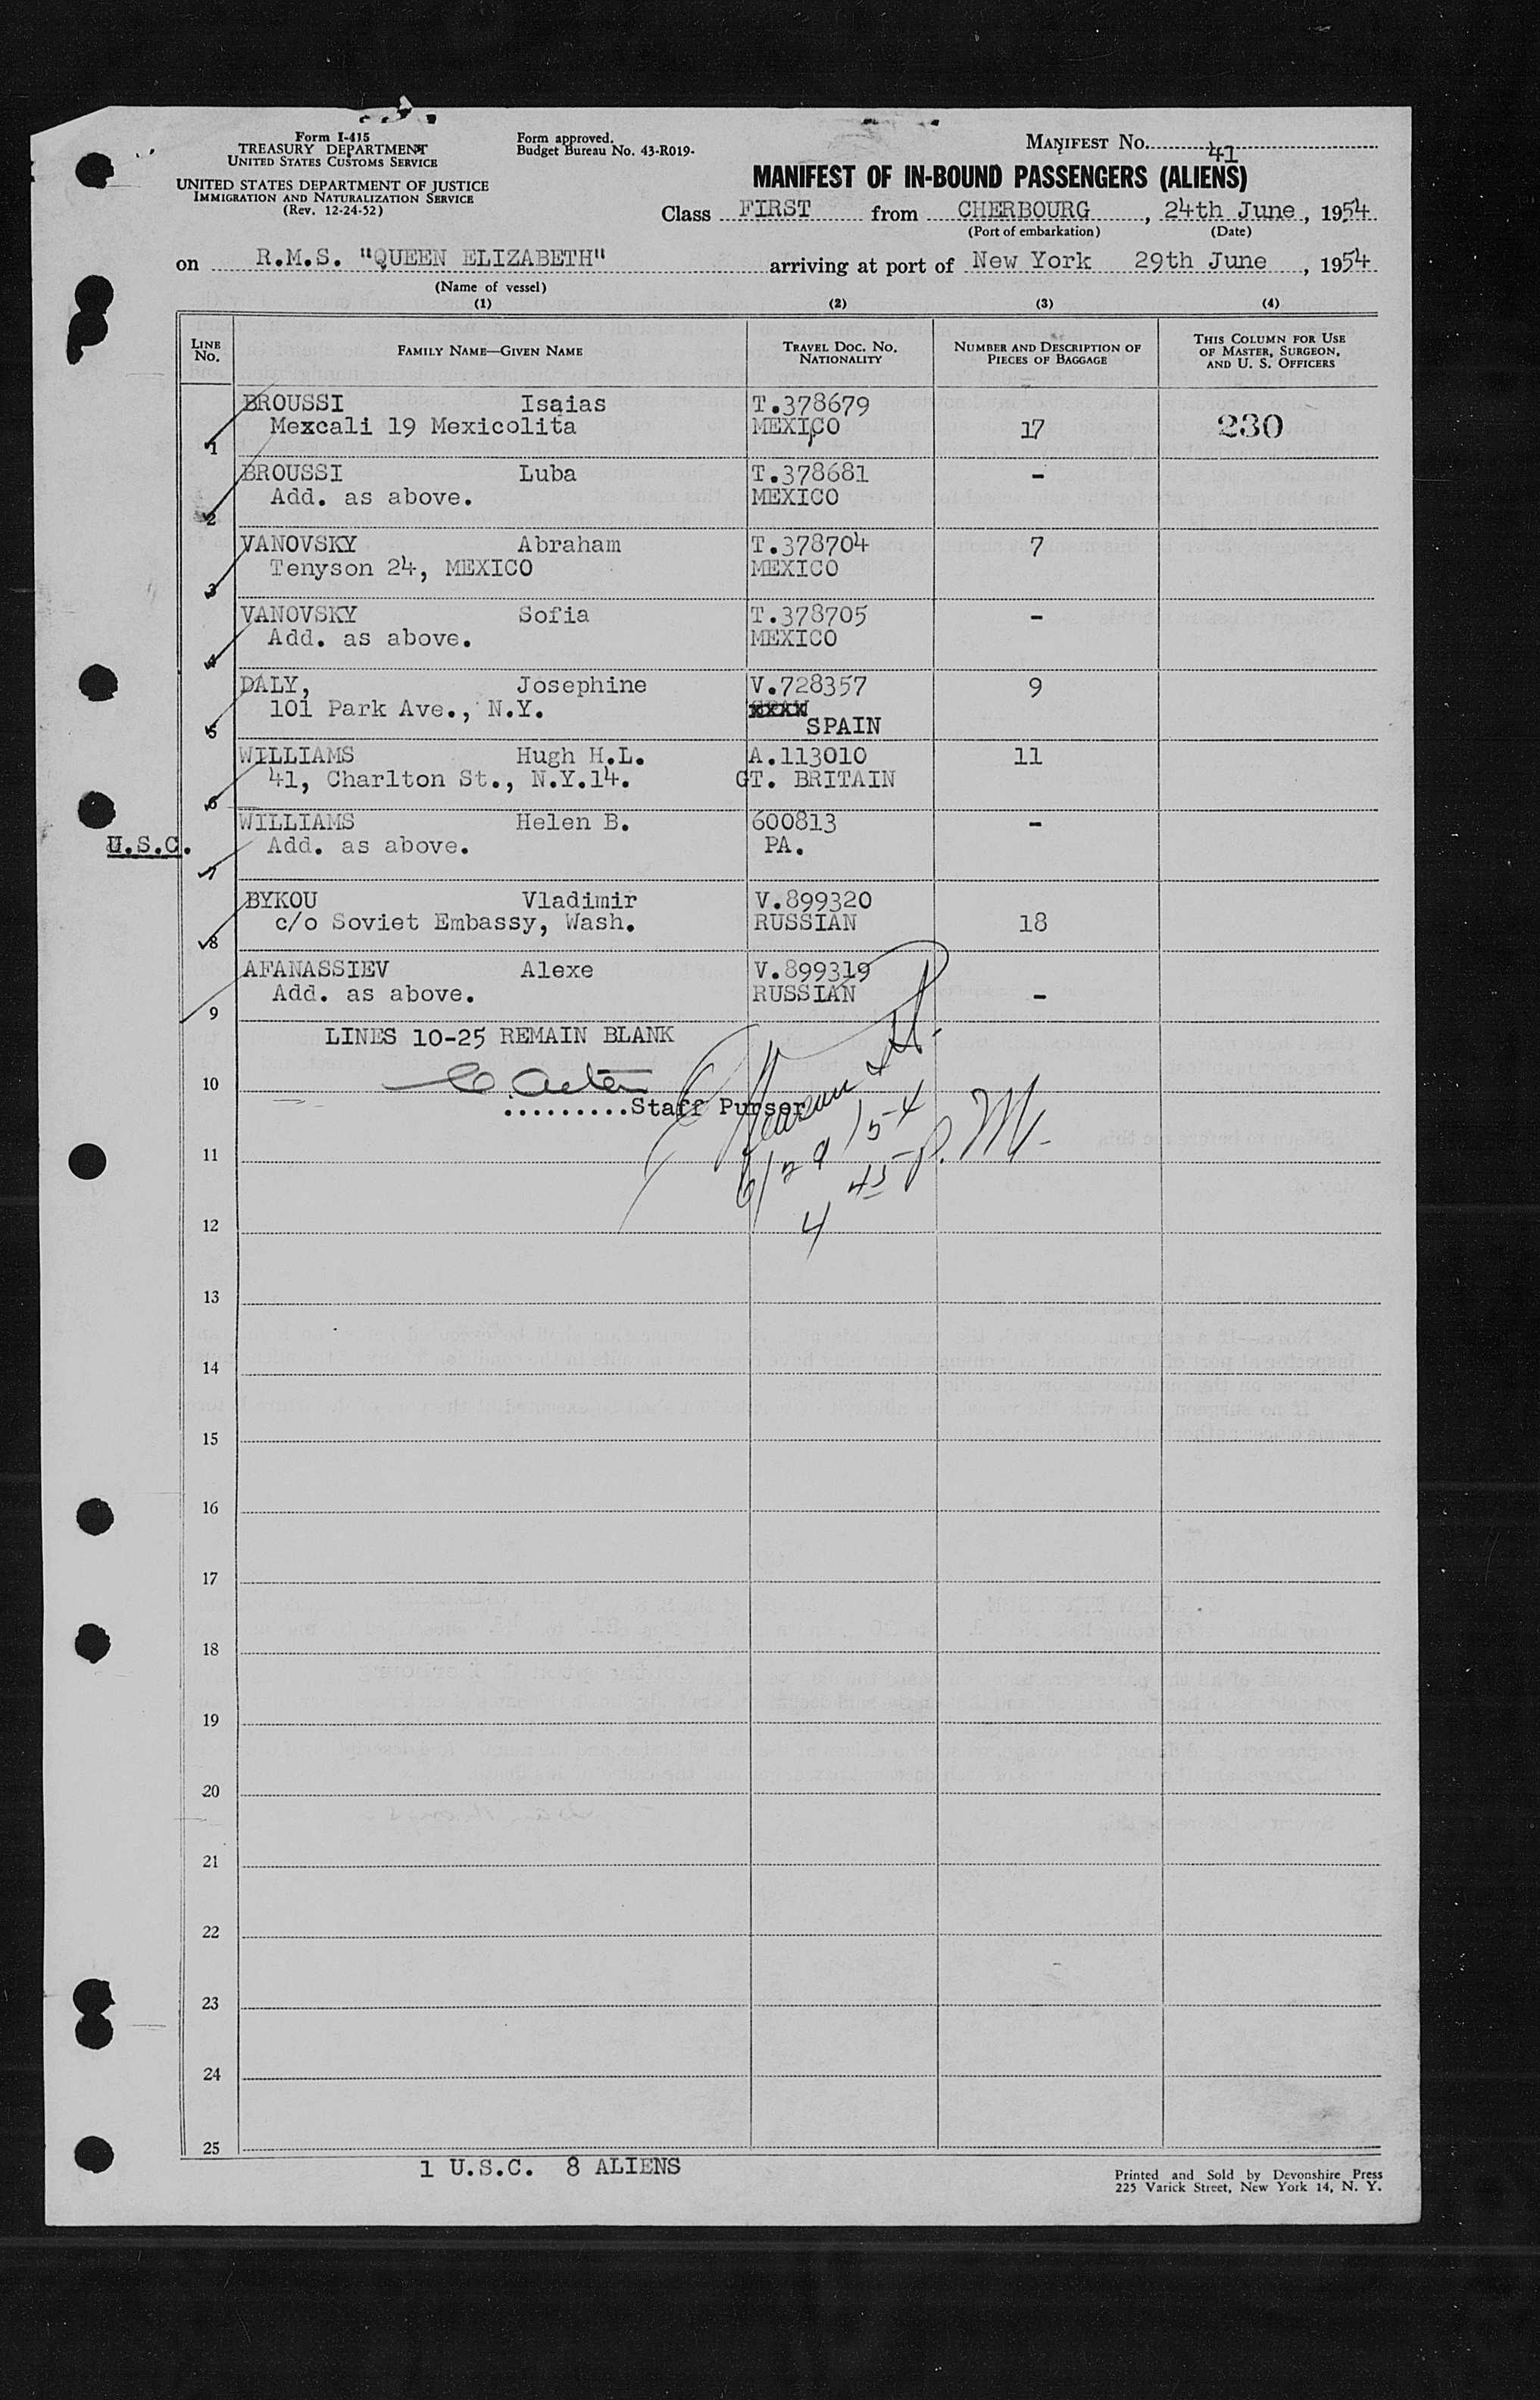 Form I-415
TREASURY DEPARTMENT
UNITED STATES CUSTOMS SERVICE
UNITED STATES DEPARTMENT OF JUSTICE
IMMIGRATION AND NATURALIZATION SERVICE
(Rev. 12-24-52)
Form approved.
Budget Bureau No. 43-R019-
MANIFEST No. 41
MANIFEST OF IN-BOUND PASSENGERS (ALIENS)
Class FIRST from CHERBOURG, 24th June, 1954
(Port of embarkation) (Date)
on R.M.S. "QUEEN ELIZABETH" arriving at port of New York 29th June, 1954
(Name of vessel)
(1) (2) (3) (4)
LINE No. FAMILY NAME—GIVEN NAME TRAVEL DOC. NO. NATIONALITY NUMBER AND DESCRIPTION OF PIECES OF BAGGAGE THIS COLUMN FOR USE OF MASTER, SURGEON, AND U. S. OFFICERS
BROUSSI Isaias T.378679
1 Mexcali 19 Mexicolita MEXICO 17 230
BROUSSI Luba T.378681 -
2 Add. as above. MEXICO
VANOVSKY Abraham T.378704 7
3 Tenyson 24, MEXICO MEXICO
VANOVSKY Sofia T.378705 -
4 Add. as above. MEXICO
DALY, Josephine V.728357 9
5 101 Park Ave., N.Y. xxxx
SPAIN
WILLIAMS Hugh H.L. A.113010 11
6 41, Charlton St., N.Y.14. GT. BRITAIN
WILLIAMS Helen B. 600813 -
U.S.C. 7 Add. as above. PA.
BYKOU Vladimir V.899320
8 c/o Soviet Embassy, Wash. RUSSIAN 18
AFANASSIEV Alexe V.899319
9 Add. as above. RUSSIAN -
LINES 10-25 REMAIN BLANK
10
.........Staff Purser
6/29/54
11
4 45 P.M.
12
13
14
15
16
17
18
19
20
21
22
23
24
25
1 U.S.C. 8 ALIENS
Printed and Sold by Devonshire Press
225 Varick Street, New York 14, N. Y.